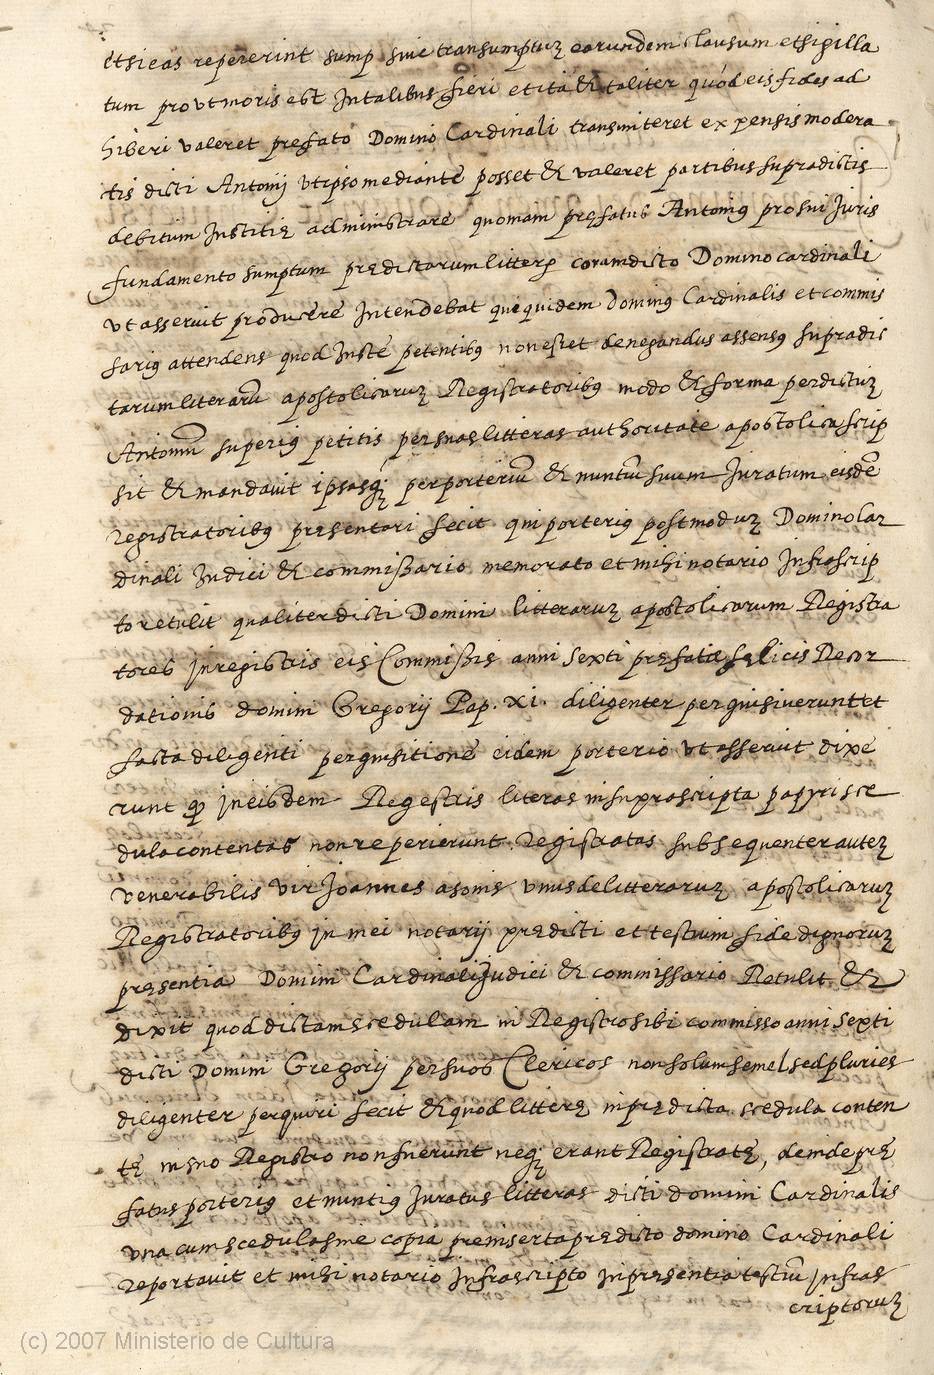 etsi eas repererint sump sive transumptuz earundem clausum et sigilla
tum prout moris est In talibus fieri et ita & taliter quòd eis fides ad
hiberi valeret prefato Domino Cardinali transmiteret expensis modera
tis dicti Antonij ut ipso mediante posset & valeret partibus supradictis
debitum Institię administrare quoniam pręfatus Antonius pro sui Juris
fundamento sumptum prędictarum litterą coram dicto Domino cardinali
ut asseruit producere Intendebat que quidem Dominus Cardinalis et commis
sarius attendens quod Juste petentibus non esset denegandus assensus supradic
tarum literarū apostolicaruz Registratoribus modo & forma per dictuz
Antoniū superius petitis per suas litteras authoritate apostolica scrip
sit & mandavit ipsasq; per porteriū & nuntiū suum Juratum eisdē
registratoribus pręsentari fecit qui porterius postmoduz Domino Car
dinali Judici & commissario memorato et mihi notario Infrascrip
to retulit qualiter dicti Domini litteraruz apostolicarum Registra
tores in registris eis Commissis anni sexti pręfatę felicis Recor
dationis domini Gregorij Pap. xi. diligenter perquisiverunt et
facta diligenti perquisitione eidem porterio ut asseruit dixe
runt qđ in eisdem Regestris literas in suprascripta papyri sce
dula contentas non reperierunt. Registratas subsequenter autez
venerabilis vir Joannes asonis unus de litteraruz apostolicaruz
Registratoribus in mei notarij prędicti et testium fide dignoruz
pręsentia Domini Cardinalis Judici & commissario Retulit &
dixit quod dictam scedulam in Registro sibi commisso anni sexti
dicti Domini Gregorij per suos Clericos non solum semel sed pluries
diligenter perquiri fecit & quod litterę in prędicta scedula conten
tę in suo Registro non fuerunt neq; erant Registratę, deinde prę
fatus porterius et nuntius Juratus litteras dicti domini Cardinalis
una cum scedula sme copia preinserta prędicto domino Cardinali
reportavit et mihi notario Infrascripto in pręsentia testiū infras
criptoruz
(c) 2007 Ministerio de Cultura